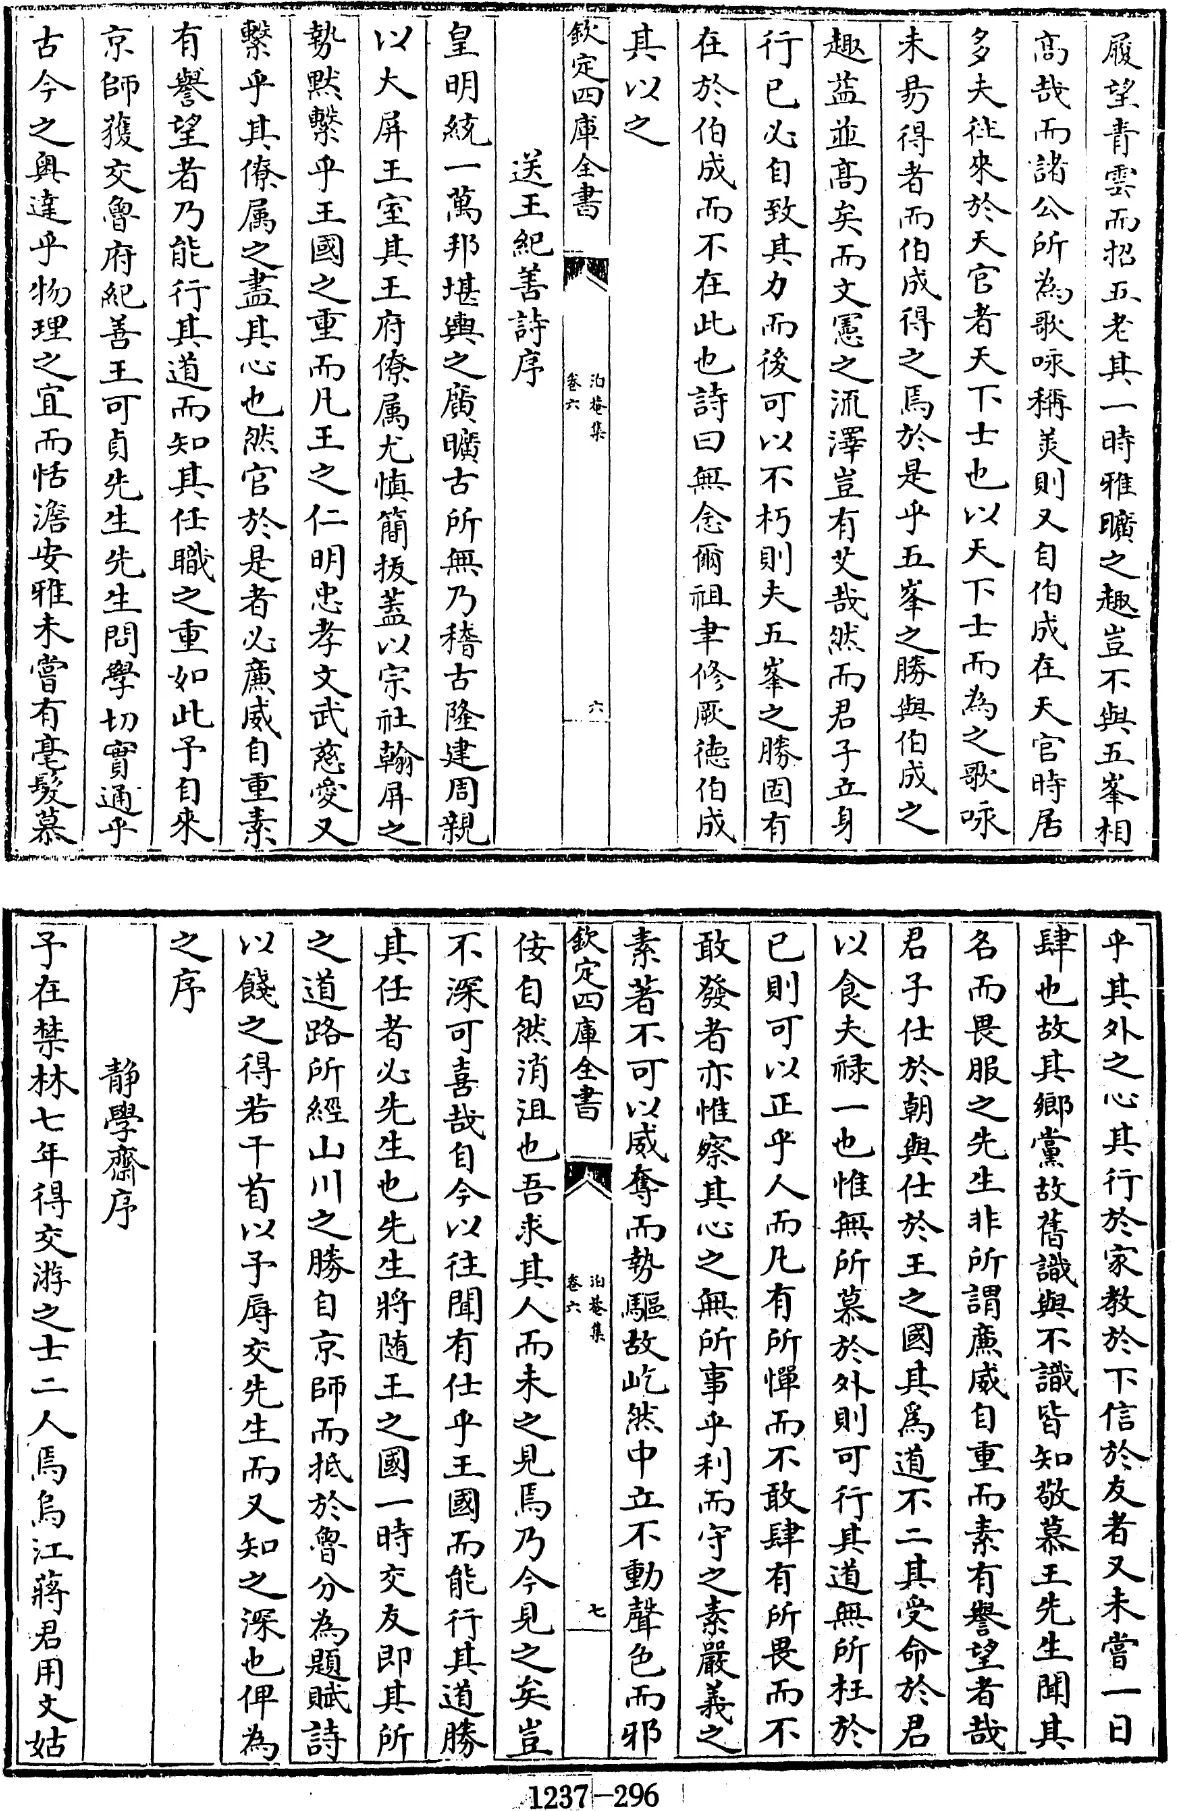 履望青雲而招五老其一時雅曠之趣豈不與五峯相
髙哉而諸公所為歌咏稱羙則又自伯成在天官時居
多夫往來於天官者天下士也以天下士而為之歌咏
未易得者而伯成得之焉於是乎五峯之勝與伯成之
趣益並髙矣而文憲之流澤豈有艾哉然而君子立身
行已必自致其力而後可以不朽則夫五峯之勝固有
在於伯成而不在此也詩曰無念爾祖聿修厥徳伯成
其以之
欽定四庫全書
泊菴集
卷六
六
送王紀善詩序
皇明統一萬邦堪輿之廣曠古所無乃稽古隆建周親
以大屏王室其王府僚属尤慎簡拔蓋以宗社翰屏之
勢黙繫乎王國之重而凡王之仁明忠孝文武慈愛又
繫乎其僚属之盡其心也然官於是者必廉威自重素
有譽望者乃能行其道而知其任職之重如此予自來
京師獲交魯府紀善王可貞先生先生問學切實通乎
古今之奥達乎物理之宜而恬澹安雅未嘗有毫髮慕
乎其外之心其行於家教於下信於友者又未嘗一日
肆也故其鄉黨故舊識與不識皆知敬慕王先生聞其
名而畏服之先生非所謂廉威自重而素有譽望者哉
君子仕於朝與仕於王之國其爲道不二其受命於君
以食夫禄一也惟無所慕於外則可行其道無所枉於
已則可以正乎人而凡有所憚而不敢肆有所畏而不
敢發者亦惟察其心之無所事乎利而守之素嚴義之
素著不可以威奪而勢驅故屹然中立不動聲色而邪
欽定四庫全書
泊菴集
卷六
七
佞自然消沮也吾求其人而未之見焉乃今見之矣豈
不深可喜哉自今以往聞有仕乎王國而能行其道勝
其任者必先生也先生將随王之國一時交友即其所
之道路所經山川之勝自京師而抵於魯分為題賦詩
以餞之得若干首以予辱交先生而又知之深也俾為
之序
静學齋序
予在禁林七年得交游之士二人焉烏江蔣君用文姑
1237-296